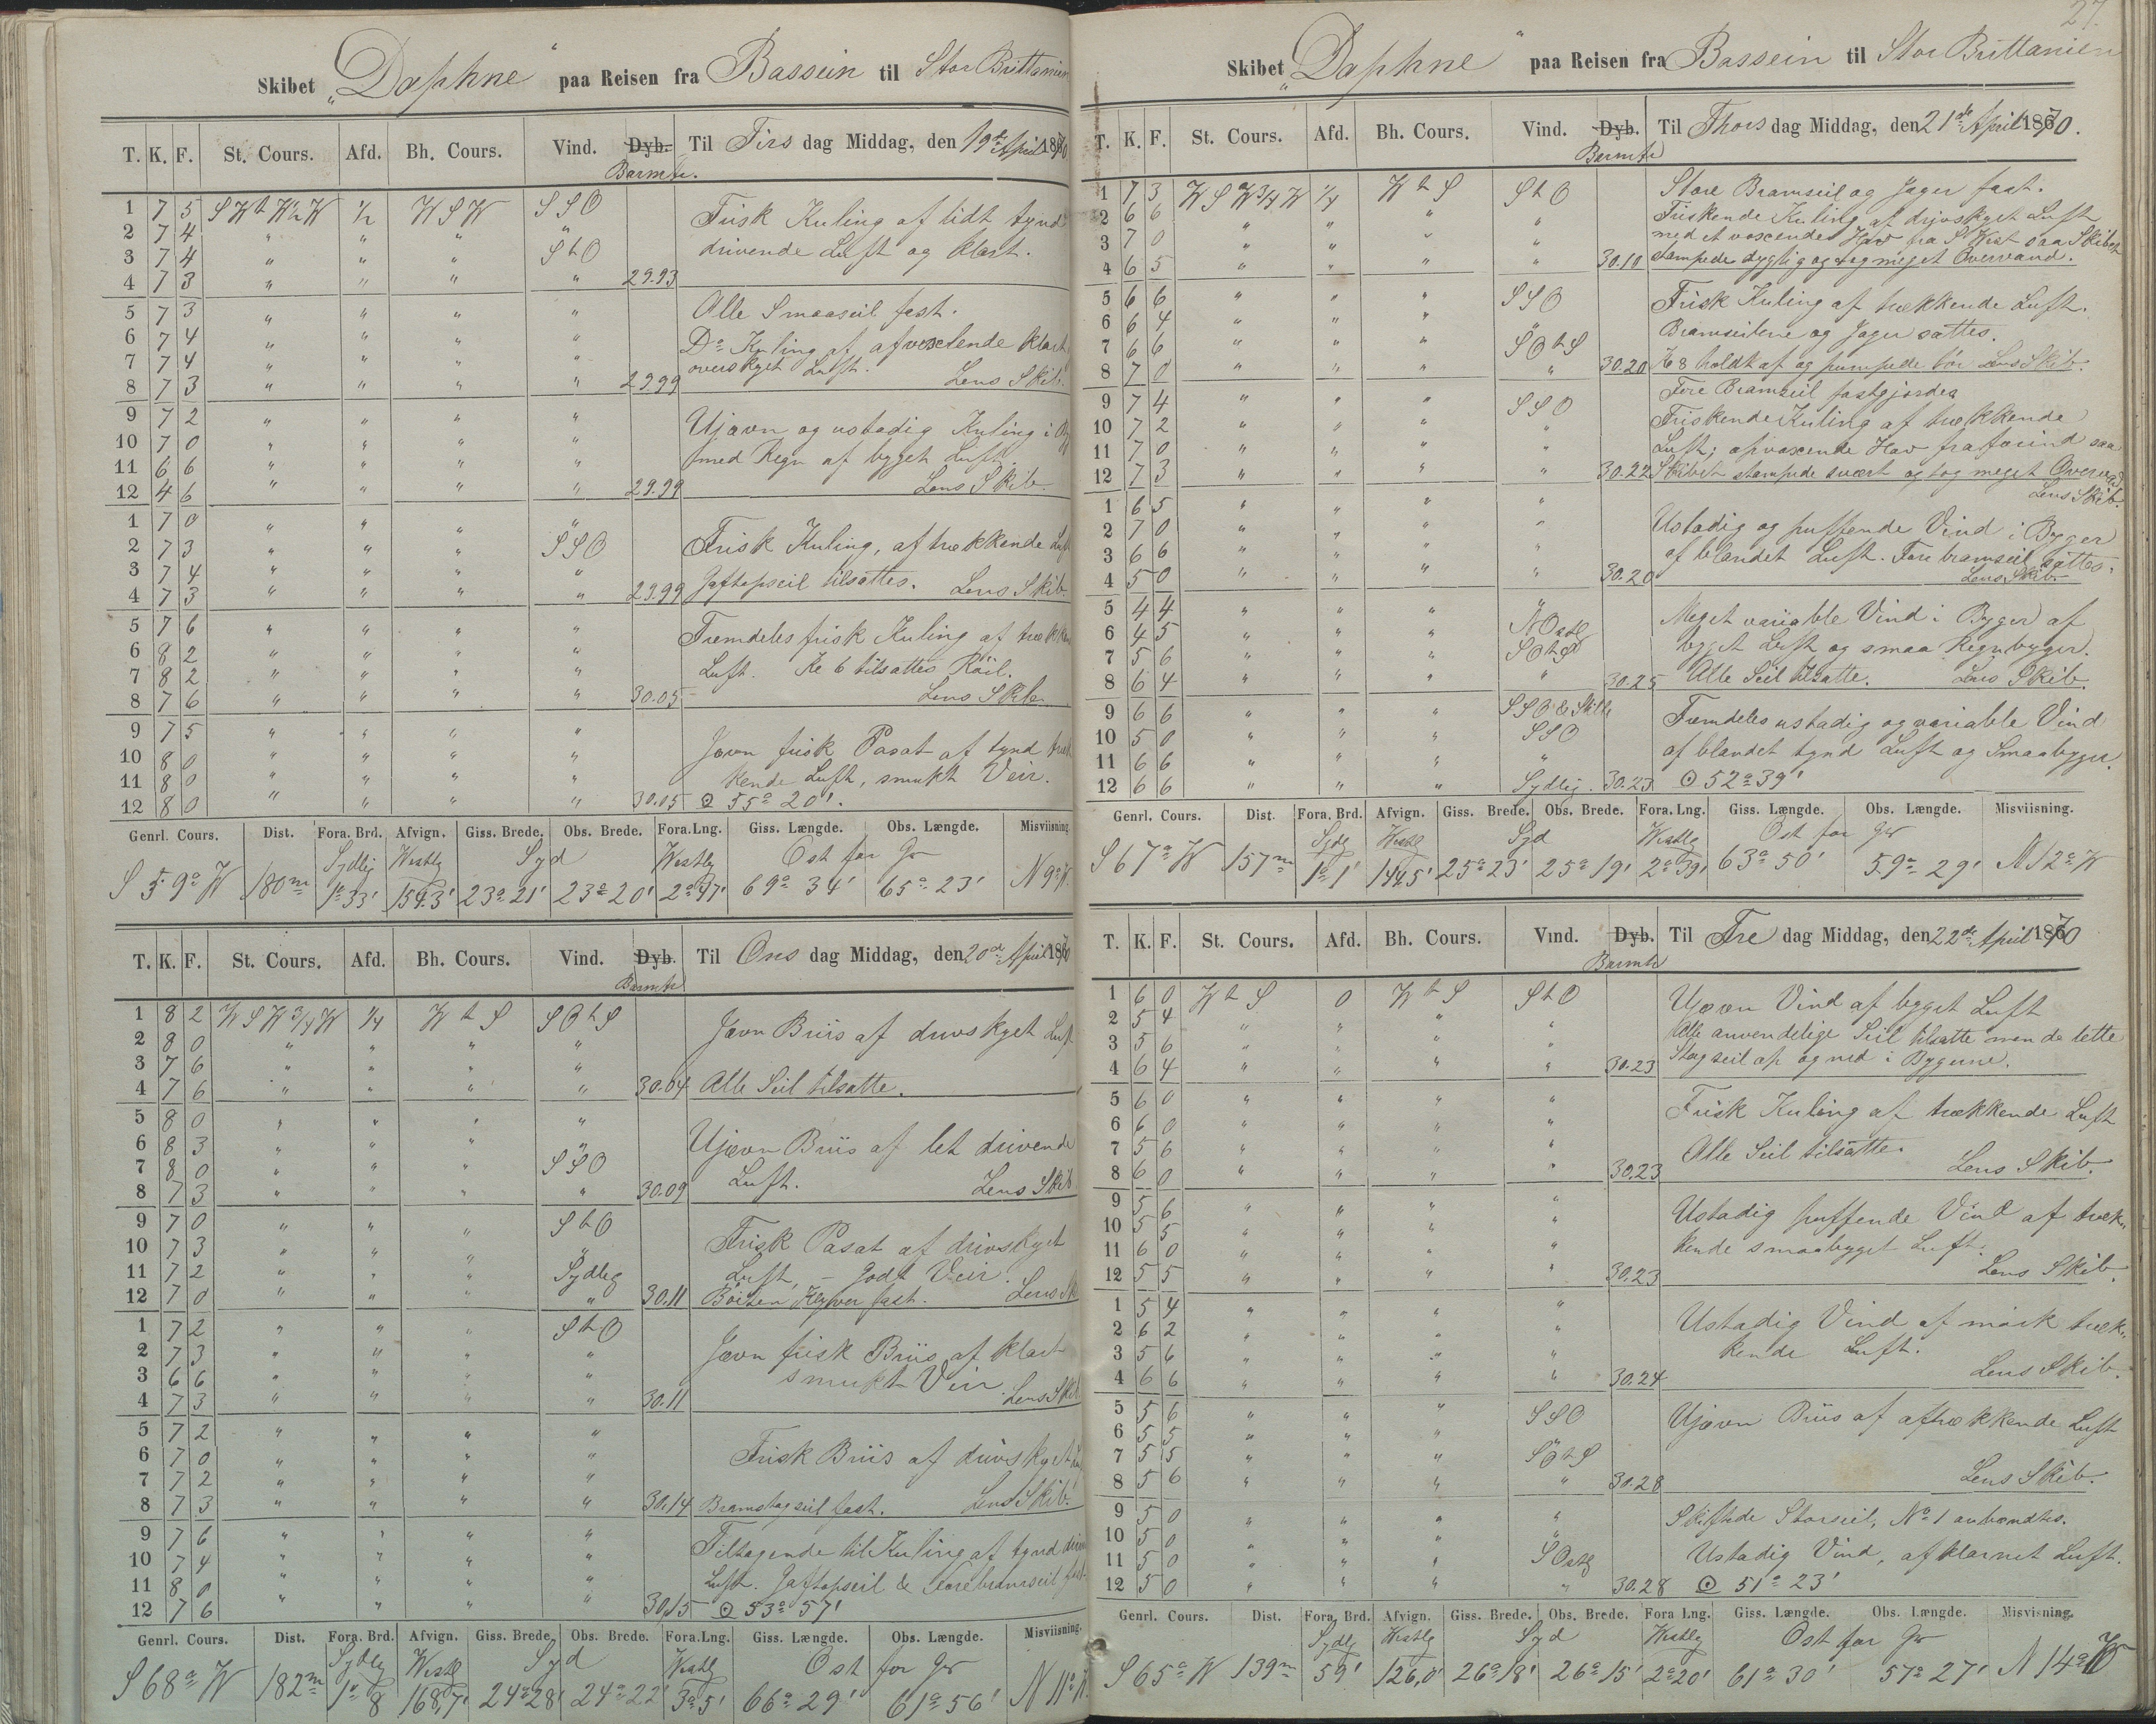 Skibet „Daphne“ paa Reisen fra Bassein til Stor Brittanien
T. K. F. St. Cours. Afd. Bh. Cours. Vind. Dyb. Barmtr. Til Tirs dag Middag, den 19de April 1870
1 7 5 S W t W ½ W ½ W S W S S O Frisk Kuling af lidt tynd
2 7 4 " " " " drivende Luft og klart.
3 7 4 " " " S t O
4 7 3 " " " " 29.93
5 7 3 " " " " Alle Smaaseil fast.
6 7 4 " " " " Do Kuling af afvexlende klart
7 7 4 " " " " overskyet Luft.
8 7 3 " " " " 29.99 Lens Skib.
9 7 2 " " " " Ujævn og ustadig Kuling i
10 7 0 " " " " med Regn af byget Luft.
11 6 6 " " " "
12 4 6 " " " " 29.99 Lens Skib.
1 7 0 " " " "
2 7 3 " " " S S O Frisk Kuling, af trækkende Luft
3 7 4 " " " "
4 7 3 " " " " 29.99 Gaftopseil tilsattes. Lens Skib.
5 7 6 " " " " Fremdeles frisk Kuling af trækken
6 8 2 " " " " Luft. Kl 6 tilsattes Röil.
7 8 2 " " " "
8 7 6 " " " " 30.05 Lens Skib
9 7 5 " " " "
10 8 0 " " " " Jævn frisk Pasat af tynd træk
11 8 0 " " " " kende Luft, smukt Veir.
12 8 0 " " " " 30.05 ⊙ 55° 20'.
Genrl. Cours. Dist. Fora. Brd. Afvign. Giss. Brede. Obs. Brede. Fora.Lng. Giss. Længde. Obs. Længde. Misviisning
Sydlig Westlg Syd Westlg Ost for Gr
S 59° W 180m 1°33' 154.3' 23°21' 23°20' 2°47' 69° 34' 65° 23' N 9° W.
T. K. F. St. Cours. Afd. Bh. Cours. Vind. Dyb. Barmtr Til Ons dag Middag, den 20de April 1870
1 8 2 W S W 3/4 W 1/4 W t S S O t S Jævn Briis af drivskyet Luft
2 8 0 " " " "
3 7 6 " " " "
4 7 6 " " " " 30.04 Alle Seil tilsatte.
5 8 0 " " " "
6 8 3 " " " " Ujævn Briis af let drivende
7 8 0 " " " S S O Luft.
8 7 3 " " " " 30.09 Lens Skib
9 7 0 " " " S t O
10 7 3 " " " " Frisk Pasat af drivskyet
11 7 2 " " " Sydleg Luft, – godt Veir.
12 7 0 " " " " 30.11 Klyver fast. Lens Sk
1 7 2 " " " S t O
2 7 3 " " " " Jævn frisk Briis af klart
3 6 6 " " " " smukt Veir.
4 7 3 " " " " 30.11 Lens Skib
5 7 2 " " " "
6 7 0 " " " " Frisk Briis af drivskyet
7 7 2 " " " "
8 7 3 " " " " 30.14 Bramstagseil fast. Lens Skib.
9 7 6 " " " " Tiltagende til Kuling af tynd
10 7 4 " " " "
11 8 0 " " " " Luft. Gaftopseil & Forebramseil fast
12 7 6 " " " " 30.15 ⊙ 53° 57'
Genrl. Cours. Dist. Fora. Brd. Afvign. Giss. Brede. Obs. Brede. Fora.Lng. Giss. Længde. Obs. Længde. Misviisning.
Sydlg Westl Syd Westlg Ost for Gr
S 68° W 182m 1° 8 168,7' 24°28' 24°22' 3°5' 66° 29' 61° 56' N 11° W.
27.
Skibet „Daphne“ paa Reisen fra Bassein til Stor Brittanien
T. K. F. St. Cours. Afd. Bh. Cours. Vind. Dyb. Barmtr Til Thors dag Middag, den 21de April 1870.
1 7 3 W S W 3/4 W 1/4 W t S S t O Store Bramseil og Jager fast.
2 6 6 " " " " Friskende Kuling af drivskyet Luft
3 7 0 " " " " med et voxende Hav fra S West saa Skibet
4 6 5 " " " " 30.10 stampede dygtig og tog meget Overvand.
5 6 6 " " " S S O Frisk Kuling af trækkende Luft.
6 6 4 " " " " Bramseilene og Jager sattes.
7 6 6 " " " S O t S
8 7 0 " " " " 30.20 Kl 8 holdt af og pumpede for Lens Skib.
9 7 4 " " " S S O Fore Bramseil fastgjordes
10 7 2 " " " " Friskende Kuling af trækkende
11 7 0 " " " " Luft; opvoxende Hav fra forind saa
12 7 3 " " " " 30.22 Skibet stampede svært og tog meget Overvand
Lens Skib.
1 6 5 " " " "
2 7 0 " " " " Ustadig og puffende Vind i Byger
3 6 6 " " " " af blandet Luft. Fore bramseil sattes.
4 5 0 " " " " 30.20 Lens Skib.
5 4 4 " " " " Meget variable Vind i Byger af
6 4 5 " " " N Ostlg byget Luft og smaa Regnbyger.
7 5 6 " " " S O t S
8 6 4 " " " " 30.25 Alle Seil tilsatte. Lens Skib.
9 6 6 " " " S S O & Stille Fremdeles ustadig og variable Vind
10 5 0 " " " S S O
11 6 6 " " " " af blandet tynd Luft og Smaabyger.
12 6 6 " " " Sydlig. 30.23 ⊙ 52° 39'
Genrl. Cours. Dist. Fora. Brd. Afvign. Giss. Brede. Obs. Brede. Fora.Lng. Giss. Længde. Obs. Længde. Misviisning.
Sydlg Westl Syd Westlg Ost for Gr
S 67° W 157m 1°1' 144,5' 25°23' 25° 19' 2°39' 63° 50' 59° 29' N 12° W
T. K. F. St. Cours. Afd. Bh. Cours. Vind. Dyb. Barmtr Til Fre dag Middag, den 22de April 1870
1 6 0 W t S 0 W t S S t O Ujævn Vind af byget Luft
2 5 4 " " " " Alle anvendelige Seil tilsatte men de lette
3 5 6 " " " "
4 6 4 " " " " 30.23 Stagseil op og ned i Bygerne.
5 6 0 " " " " Frisk Kuling af trækkende Luft
6 6 0 " " " "
7 5 6 " " " " Alle Seil tilsatte.
8 6 0 " " " " 30.23 Lens Skib.
9 5 6 " " " " Ustadig puffende Vind af træk„
10 5 5 " " " "
11 6 0 " " " " kende smaabyget Luft.
12 5 5 " " " " 30.23 Lens Skib.
1 5 4 " " " " Ustadig Vind af mörk træk„
2 6 2 " " " "
3 5 6 " " " " kende Luft.
4 6 6 " " " " 30.24 Lens Skib.
5 5 6 " " " S S O Ujævn Briis af aftrækkende Luft
6 5 5 " " "
7 5 5 " " " S O t S
8 5 6 " " " " 30.28 Lens Skib.
9 5 0 " " " " Skiftede Storseil, No 1 anvendtes.
10 5 0 " " "
11 5 0 " " " S Ostlg Ustadig Vind, afklarnet Luft.
12 5 0 " " " " 30.28 ⊙ 51° 23'
Genrl. Cours. Dist. Fora. Brd. Afvign. Giss. Brede. Obs. Brede. Fora Lng. Giss. Længde. Obs. Længde. Misvisning.
Sydlg Westlg Syd Westlg Ost for Gr
S 65° W 139m 59' 126,0' 26°18' 26° 15' 2°20' 61° 30' 57° 27' N 14° W